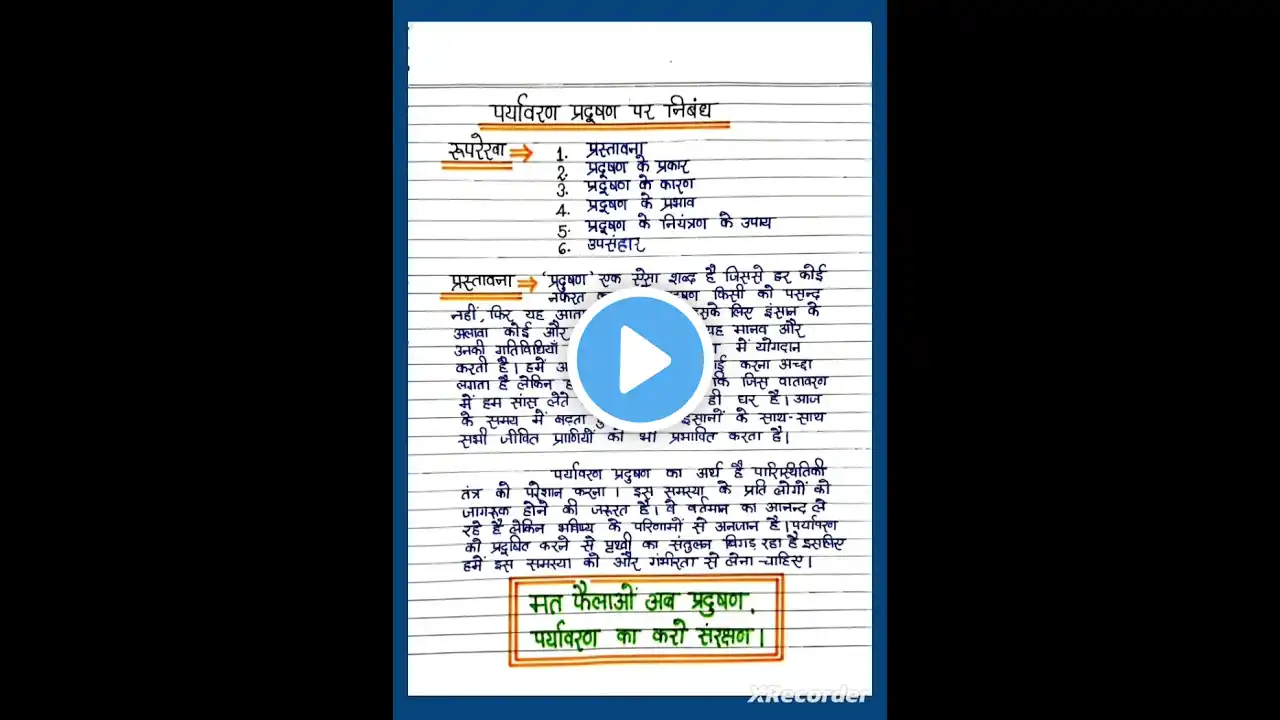 पर्यावरण प्रदूषण पर निबंध
रूपरेखा ⇒ 1. प्रस्तावना
2. प्रदूषण के प्रकार
3. प्रदूषण के कारण
4. प्रदूषण के प्रभाव
5. प्रदूषण के नियंत्रण के उपाय
6. उपसंहार
प्रस्तावना ⇒ 'प्रदुषण' एक ऐसा शब्द है जिससे हर कोई
नफरत किसी को पसन्द
नहीं, फिर यह लिए इंसान के
अलावा कोई और यह मानव और
उनकी गतिविधियाँ में योगदान
करती है। हमें करना अच्छा
लगता है लेकिन कि जिस वातावरण
में हम सांस लेते ही घर है। आज
के समय में बढ़ता इंसानों के साथ-साथ
सभी जीवित प्राणियों को भी प्रभावित करता है।
पर्यावरण प्रदुषण का अर्थ है पारिस्थितिकी
तंत्र को परेशान करना। इस समस्या के प्रति लोगों को
जागरूक होने की जरूरत है। वे वर्तमान का आनन्द ले
रहे है लेकिन भविष्य के परिणामों से अनजान है। पर्यावरण
को प्रदूषित करने से पृथ्वी का संतुलन बिगड़ रहा है इसलिए
हमें इस समस्या को और गंभीरता से लेना चाहिए।
मत फैलाओं अब प्रदुषण,
पर्यावरण का करो संरक्षण।
XRecorder